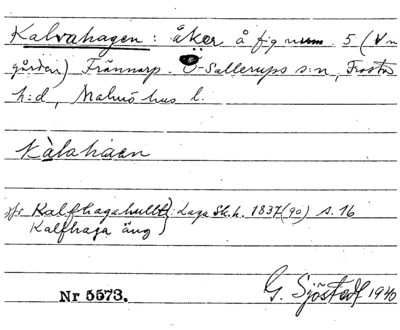 Kalvahagen: åker å fig num. 5 (Vn
gården) Frännarp. Ö-Sallerups s:n, Frosta
h:d, Malmöhus l.
Kàlahàen
jfr Kalfhagahullt } Laga Sk.h. 1837(90) s. 16
Kalfhaga äng }
Nr 5573.
G. Sjöstedt 1940